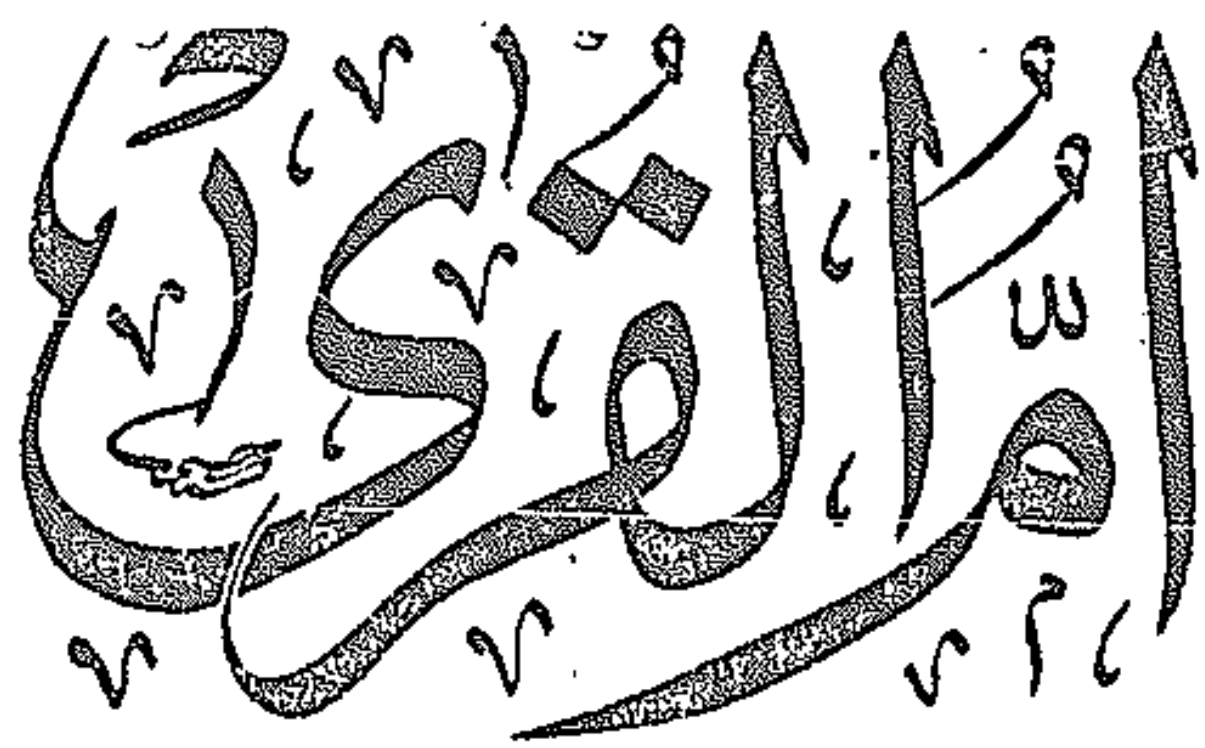 امُّ القُرى